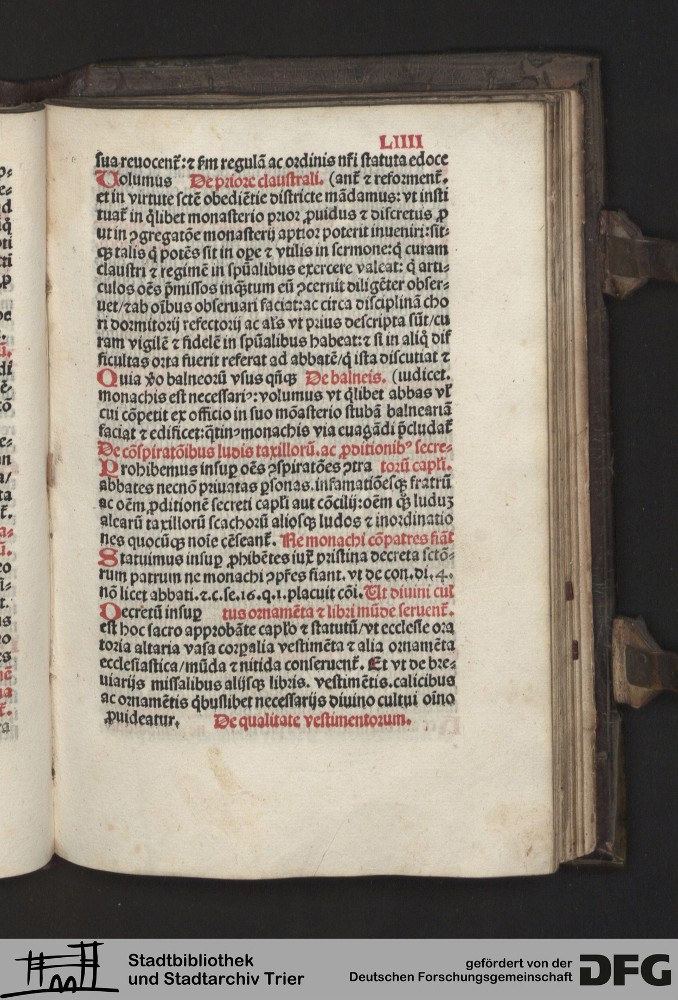 LIIII
sua reuocent᷑: ⁊ ẜm regulā ac ordinis nr̄i statuta edoce
Uolumus De priore claustrali. (ant᷑ ⁊ reforment᷑.
et in virtute scte᷑ obediētie districte mādamus: vt insti
tuat᷑ in q̄libet monasterio prior ꝓuidus ⁊ discretus ꝓ
ut in ꝯgregatōe monasterij aptior poterit inueniri: sit⸗
qꝫ talis q̄ potēs sit in oꝑe ⁊ vtilis in sermone: q̄ curam
claustri ⁊ regimē in spūalibus exercere valeat: q̄ arti⸗
culos oēs p̄missos inqꝫtum eū ꝯcernit diligēter obser⸗
uet/⁊ ab oībus obseruari faciat: ac circa disciplinā cho
ri dormitorij refectorij ac al's vt prius descripta sūt/cu
ram vigilē ⁊ fidelē in spūalibus habeat: ⁊ si in aliq̄ dif
ficultas orta fuerit referat ad abbatē/q̄ ista discutiat ⁊
Quia v̄o balneorū vsus qn̄qꝫ De balneis. (iudicet.
monachis est necessariꝰ: volumus vt q̄libet abbas vl᷑
cui cōpetit ex officio in suo mōasterio stubā balneariā
faciat ⁊ edificet: q̄tinꝰ monachis via euagādi p̄cludat᷑
De cōspiratōibus ludis taxillorū. ac ꝓditionibꝰ secre⸗
Prohibemus insuꝑ oēs ꝯspiratōes ꝯtra torū capl'i.
abbates necnō priuatas ꝑsonas. infamatiōesqꝫ fratrū
ac oēm ꝓditionē secreti capl'i aut cōcilij: oēm qꝫ luduꝫ
alearū taxillorū scachorū aliosqꝫ ludos ⁊ inordinatio
nes quocūqꝫ noīe cēseant᷑. Ne monachi cōpatres fiāt
Statuimus insuꝑ ꝓhibētes iux᷑ pristina decreta sctō⸗
rum patrum ne monachi ꝯpr̄es fiant. vt de con. di. 4.
nō licet abbati. ⁊.c.se.16.q.1. placuit cōi. Ut diuini cul
Decretū insuꝑ tus ornamēta ⁊ libri mūde seruent᷑.
est hoc sacro approbāte capl'o ⁊ statutū/vt ecclesie ora
toria altaria vasa corꝑalia vestimēta ⁊ alia ornamēta
ecclesiastica/mūda ⁊ nitida conseruent᷑. Et vt de bre⸗
uiarijs missalibus alijsqꝫ libris. vestimētis. calicibus
ac ornamētis q̄buslibet necessarijs diuino cultui oīno
ꝓuideatur. De qualitate vestimentorum.
Stadtbibliothek
und Stadtarchiv Trier
gefördert von der
Deutschen Forschungsgemeinschaft DFG